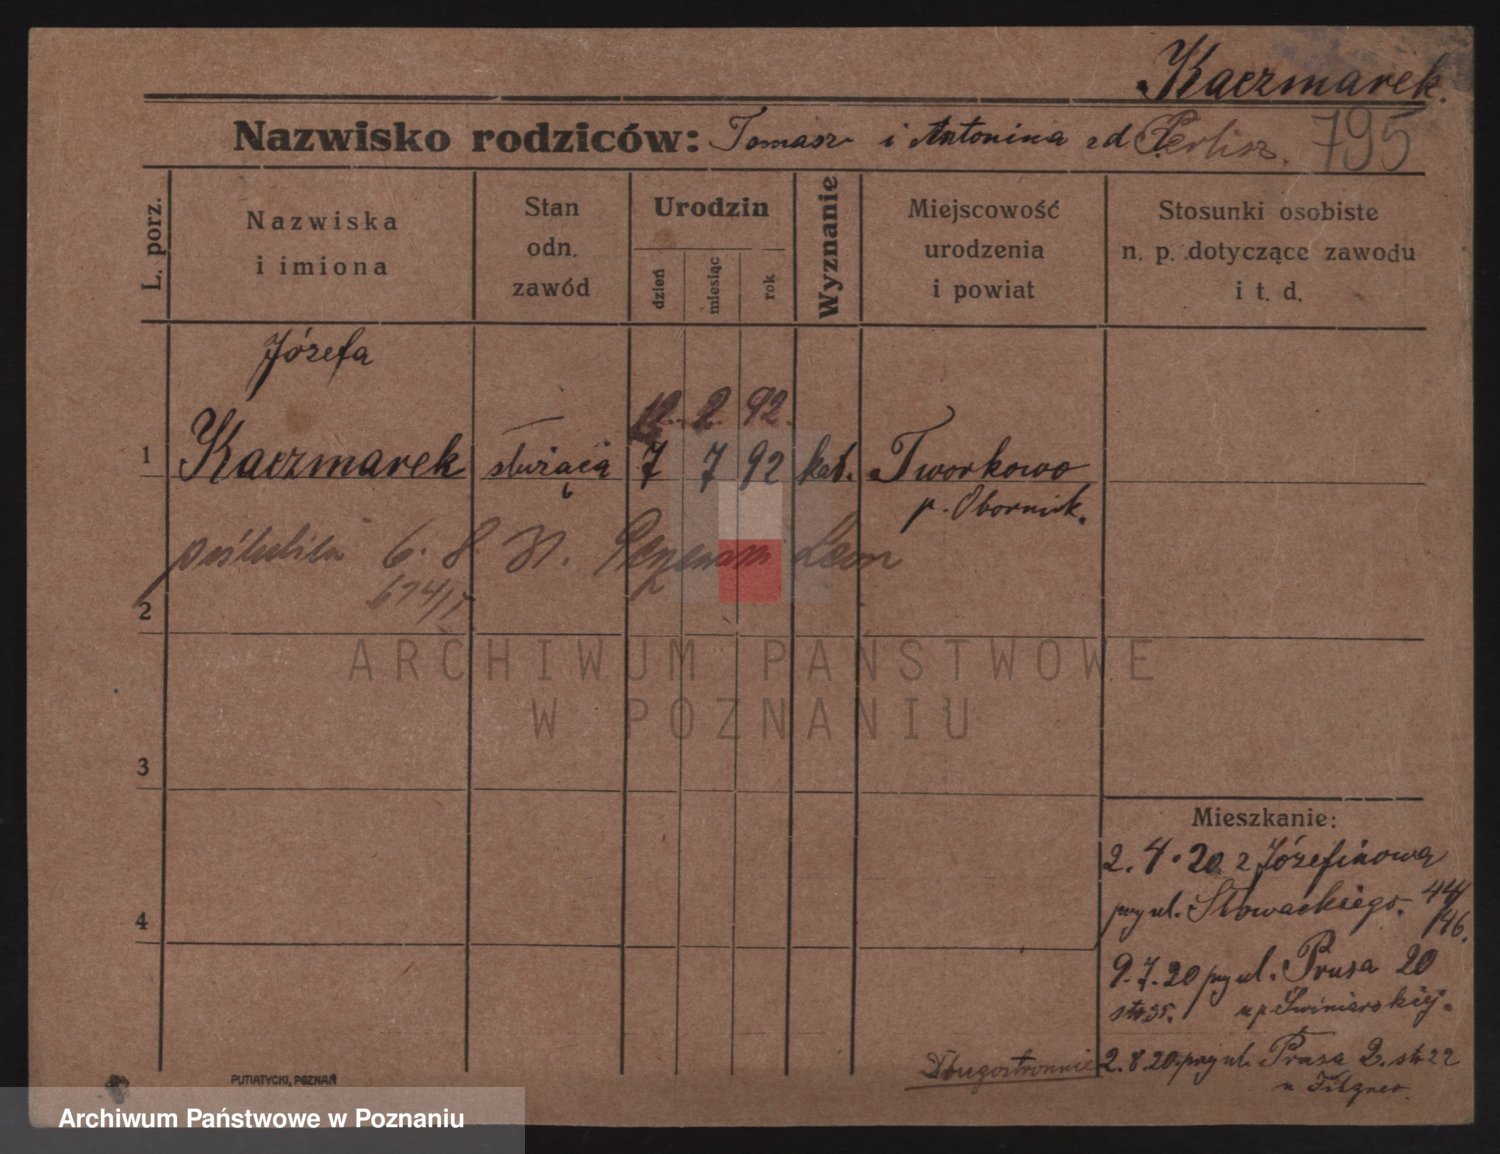 Kaczmarek.
Nazwisko rodziców: Tomasz i Antonina zd Perlisz. 795
L. porz.
Nazwiska i imiona
Stan odn. zawód
Urodzin
dzień
miesiąc
rok
Wyznanie
Miejscowość urodzenia i powiat
Stosunki osobiste n. p. dotyczące zawodu i t. d.
Józefa
12. 2. 92.
1 Kaczmarek służąca 7 7 92 kat. Tworkowo
p. Obornik.
poślubiła 6. 8. 31. Leon
2
ARCHIWUM PAŃSTWOWE
W POZNANIU
3
Mieszkanie:
2. 4. 20 z Józefinowa
przy ul. Słowackiego. 44/46.
4
9. 7. 20 przy ul. Prusa 20
str 35. np. Świniarskiej.
Długostronnie 2. 8. 20. przy ul. Prusa 2. str 22
u
PUTIATYCKI, POZNAŃ
Archiwum Państwowe w Poznaniu